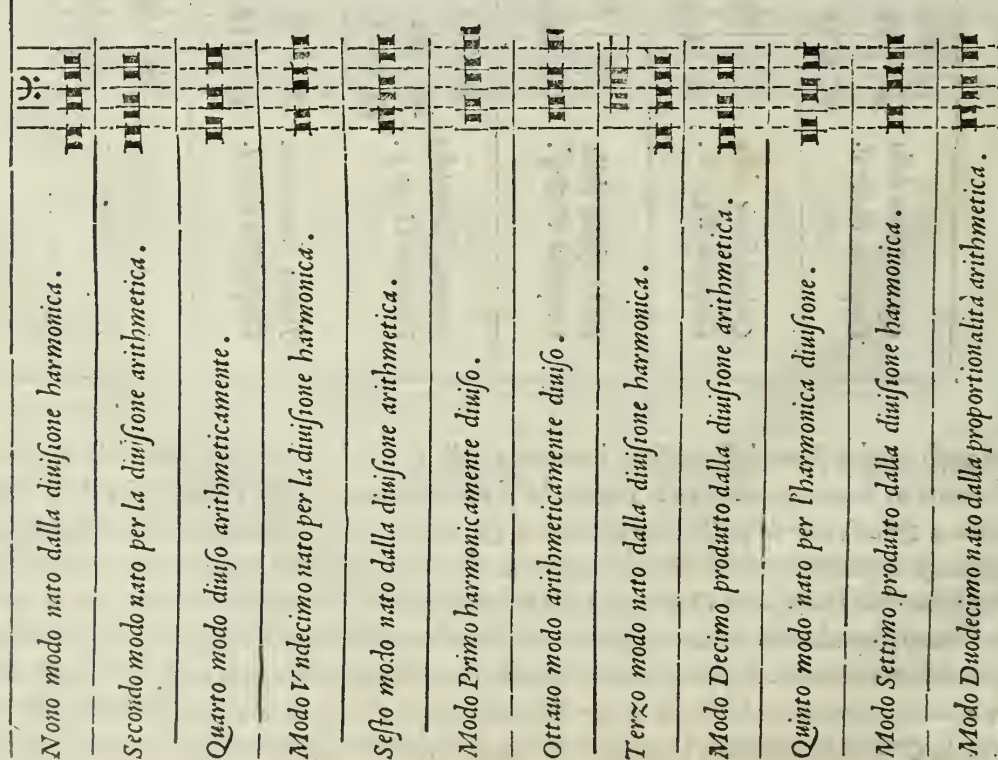 Nono modo nato dalla diuiſione harmonica.
Secondo modo nato per la diuiſione arithmetica.
Quarto modo diuiſo arithmeticamente.
Modo Vndecimo nato per la diuiſione harmonica.
Seſto modo nato dalla diuiſione arithmetica.
Modo Primo harmonicamente diuiſo.
Ottauo modo arithmeticamente diuiſo.
Terzo modo nato dalla diuiſione harmonica.
Modo Decimo produtto dalla diuiſione arithmetica.
Quinto modo nato per l'harmonica diuiſione.
Modo Settimo produtto dalla diuiſione harmonica.
Modo Duodecimo nato dalla proportionalità arithmetica.